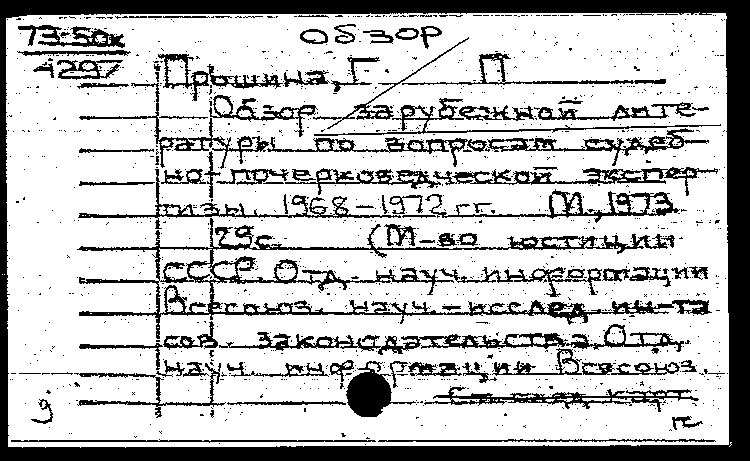 73-50к
4297
Обзор
Прошина, Г П
Обзор зарубежной лите-
ратуры по вопросам судеб-
но-почерковедческой экспер-
тизы. 1968-1972 гг. М., 1973
29 с. (М-во юстиции
СССР. Отд. науч. информации
Всесоюз. науч.-исслед. ин-та
сов. законодательства. Отд.
науч. информации Всесоюз.
См след. карт.
9
п